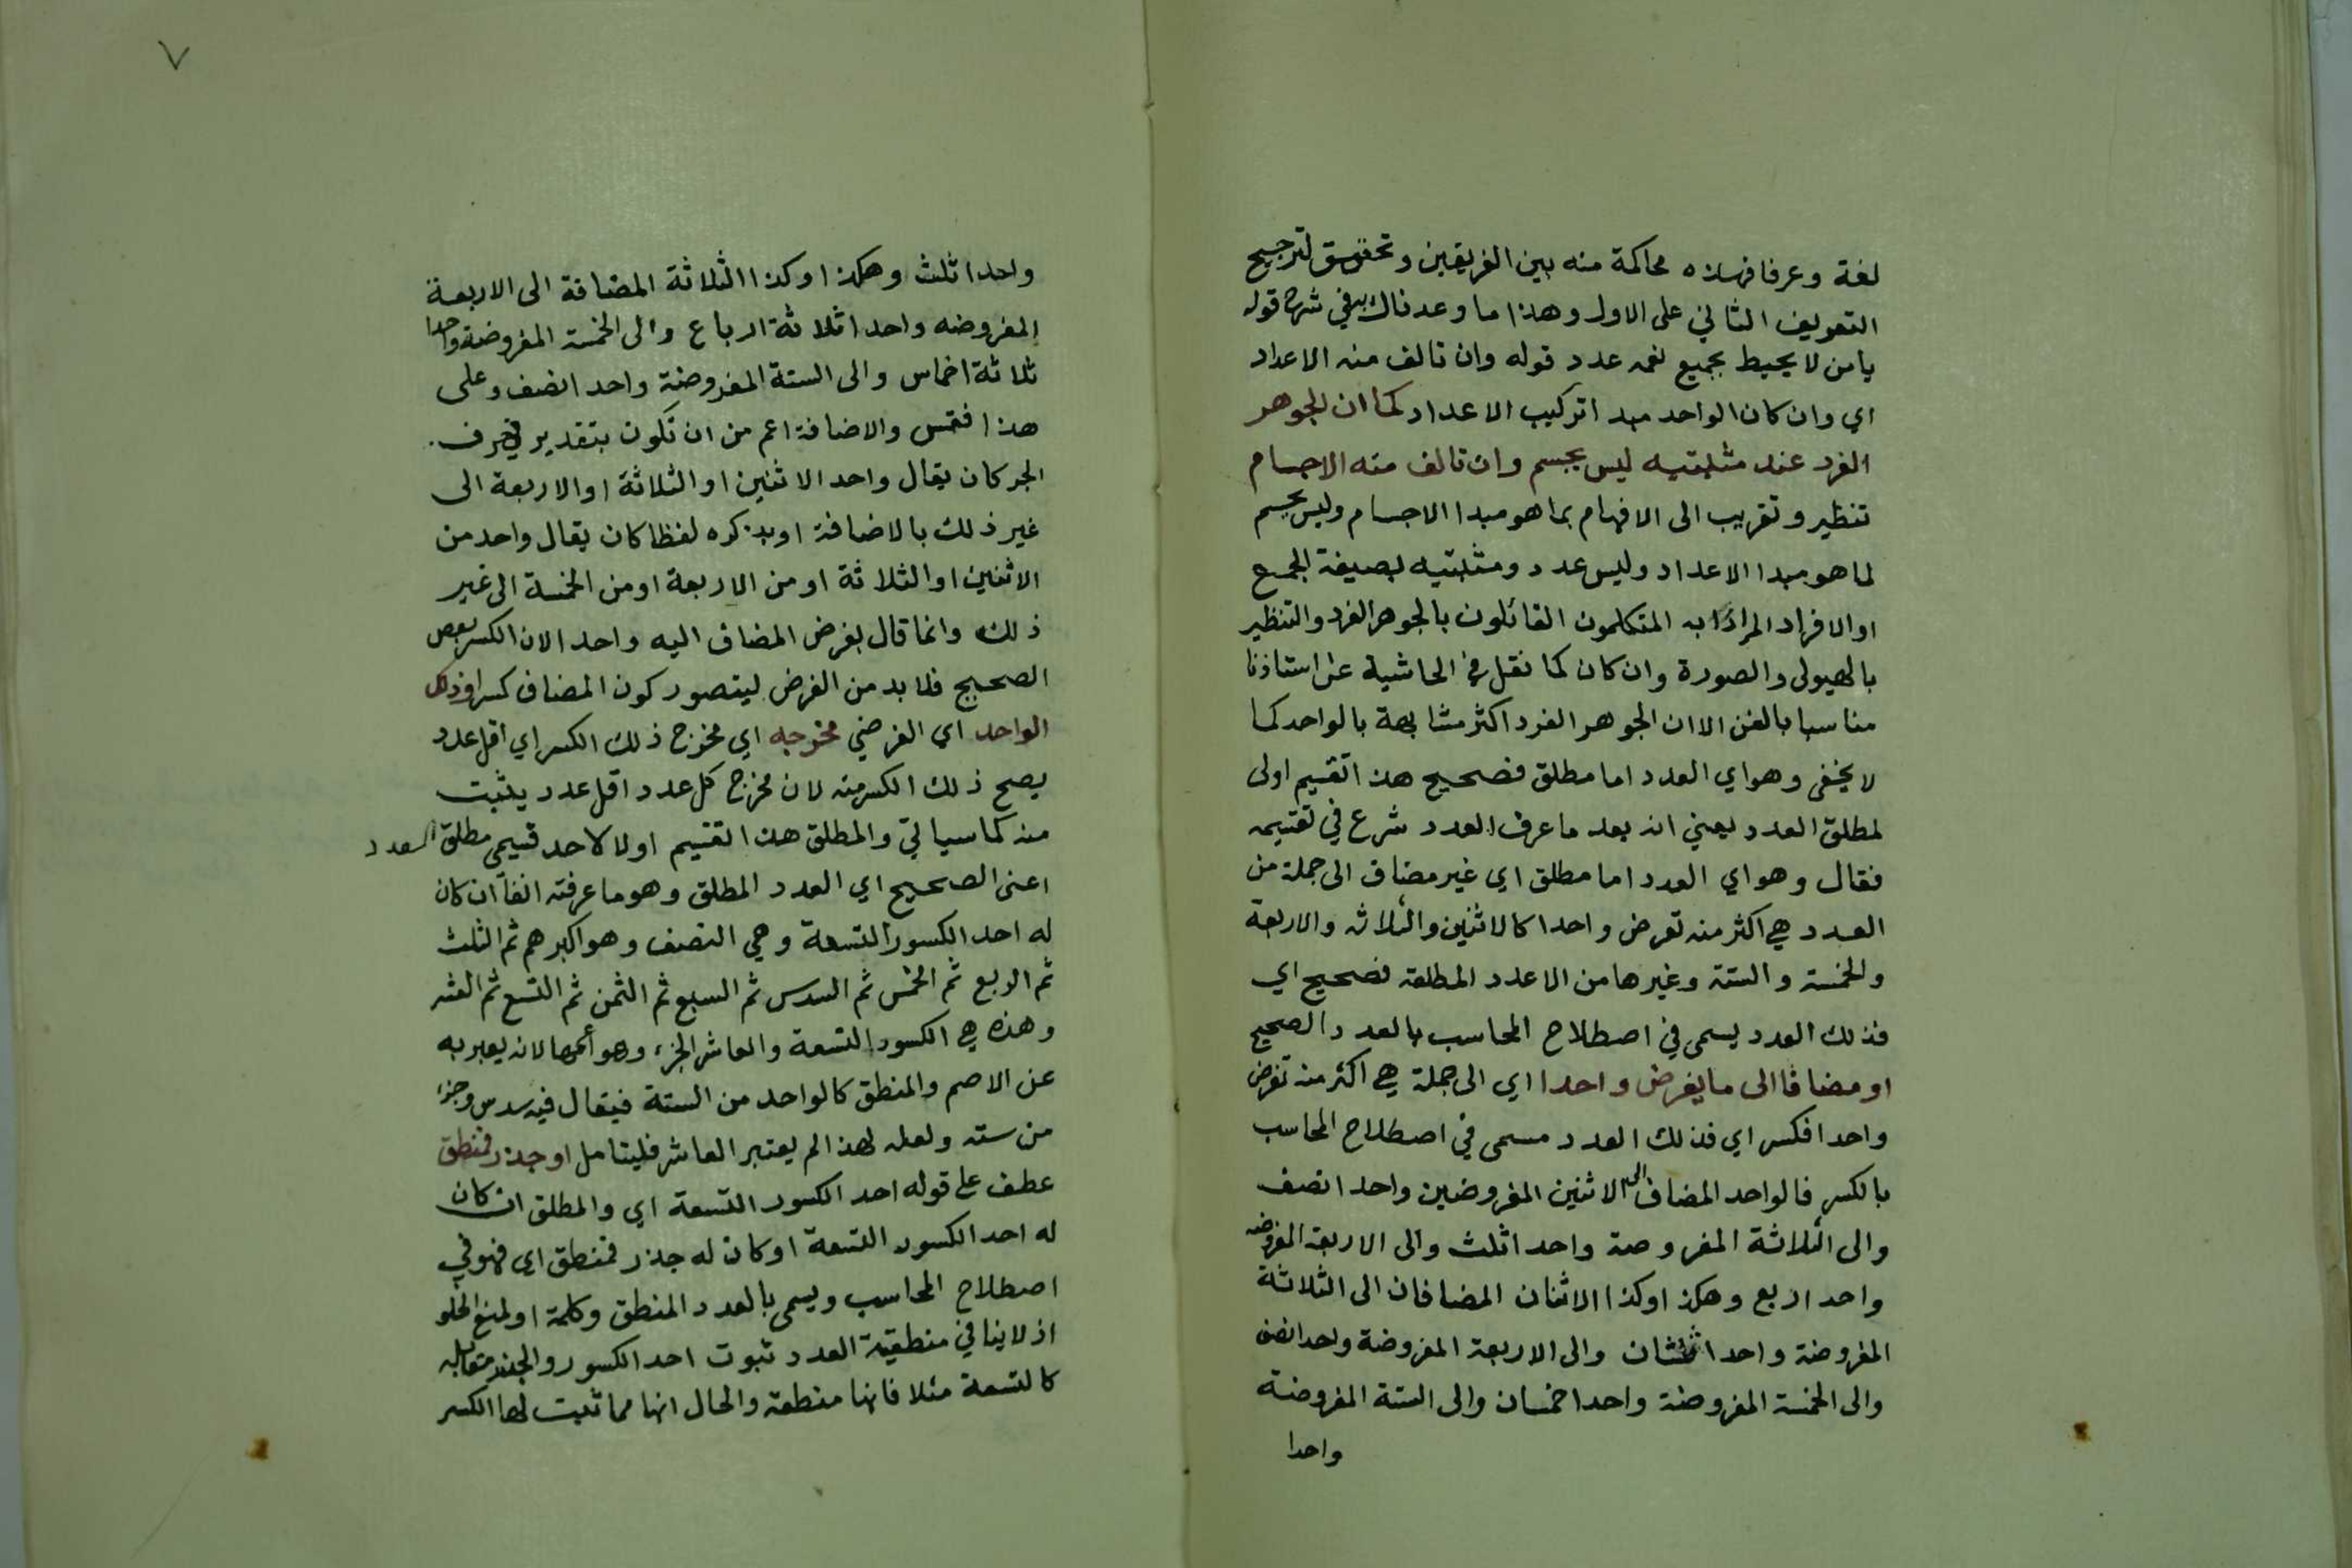 لغة وعرفا فهذه محاكمة منه بين الفريقين وتحقيق لترجيح
التعريف الثاني على الاول وهذا ما وعدناك به في شرح قوله
يامن لا يحيط بجميع نعمه عدد قوله وان تالف منه الاعداد
اي وان كان الواحد مبدا تركيب الاعداد كما ان الجوهر
الفرد عند مثبتيه ليس بجسم وان تالف منه الاجسام
تنظير وتقريب الى الافهام بما هو مبدا الاجسام وليس بجسم
لما هو مبدا الاعداد وليس عدد ومثبتيه بصيغة الجمع
او الافراد المراد به المتكلمون القائلون بالجوهر الفرد والتنظير
بالهيولى والصورة وان كان كما نقل في الحاشية عن استاذنا
مناسبا بالفن الا ان الجوهر الفرد اكثر مشابهة بالواحد كما
لا يخفى وهو اي العدد اما مطلق فصحيح هذا تقسيم اولى
لمطلق العدد يعني انه بعد ما عرف العدد شرع في تقسيمه
فقال وهو اي العدد اما مطلق اي غير مضاف الى جملة من
العدد هي اكثر منه تعرض واحدا كالاثنين والثلاثه والاربعة
والخمسة والستة وغيرها من الاعدد المطلقه فصحيح اي
فذلك العدد يسمى في اصطلاح المحاسب بالعدد الصحيح
او مضافا الى ما يفرض واحدا اي الى جملة هي اكثر منه تفرض
واحدا فكسر اي فذلك العدد مسمى في اصطلاح المحاسب
بالكسر فالواحد المضاف الى الاثنين المفروضين واحدا نصف
والى الثلاثة المفروضة واحدا ثلث والى الاربعة المفروضه
واحدا ربع وهكذا وكذا الاثنان المضافان الى الثلاثة
المفروضة واحدا ثلثان والى الاربعة المفروضة واحدا نصف
والى الخمسة المفروضة واحدا خمسان والى الستة المفروضة
واحدا
٧
واحدا ثلث وهكذا وكذا الثلاثة المضافة الى الاربعة
المفروضه واحدا ثلاثة ارباع والى الخمسة المفروضة واحدا
ثلاثة اخماس والى الستة المفروضة واحدا نصف وعلى
هذا فقس والاضافة اعم من ان تكون بتقدير حرف
الجر كان يقال واحد الاثنين او الثلاثة او الاربعة الى
غير ذلك بالاضافة او بذكره لفظا كان يقال واحد من
الاثنين او الثلاثة او من الاربعة او من الخمسة الى غير
ذلك وانما قال بفرض المضاف اليه واحدا لان الكسر بعض
الصحيح فلا بد من الفرض ليتصور كون المضاف كسرا وذلك
الواحد اي الفرضي مخرجه اي مخرج ذلك الكسر اي اقل عدد
يصح ذلك الكسر منه لان مخرج كل عدد اقل عدد يثبت
منه كما سياتي والمطلق هذا تقسيم اولا لاحد قسيمي مطلق العدد
اعنى الصحيح اي العدد المطلق وهو ما عرفته انفا ان كان
له احد الكسور التسعة وهي النصف وهو اكبرهم ثم الثلث
ثم الربع ثم الخمس ثم السدس ثم السبع ثم الثمن ثم التسع ثم العشر
وهذه هي الكسور التسعة والعاشر الجزء وهو أعمها لانه يعبر به
عن الاصم والمنطق كالواحد من الستة فيقال فيه سدس وجزء
من سته ولعله لهذا لم يعتبر العاشر فليتامل او جذر فمنطق
عطف على قوله احد الكسور التسعة اي والمطلق ان كان
له احد الكسور التسعة او كان له جذر فمنطق اي فهو في
اصطلاح المحاسب ويسمى بالعدد المنطق وكلمة او لمنع الخلو
اذ لا ينافي منطقية العدد ثبوت احد الكسور والجذر
كالتسعة مثلا فانها منطقه والحال انها مما ثبت لها الكسر